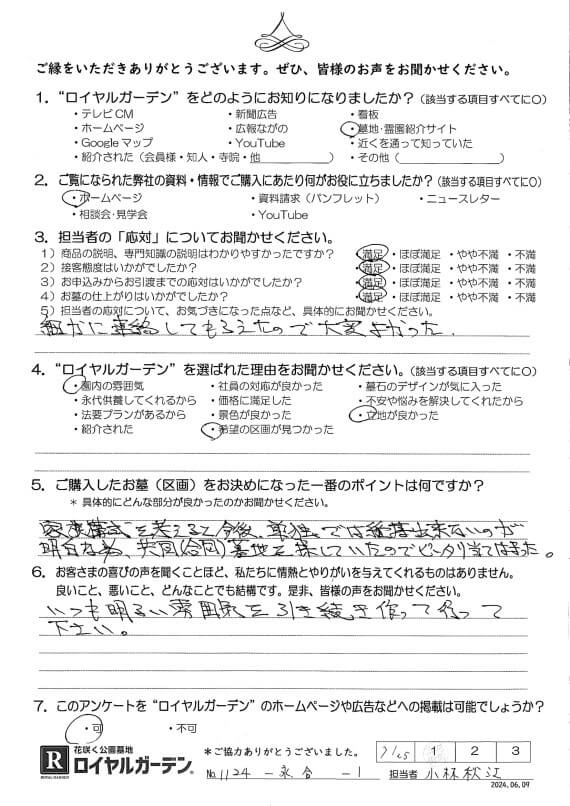 ご縁をいただきありがとうございます。ぜひ、皆様のお声をお聞かせください。
1. “ロイヤルガーデン”をどのようにお知りになりましたか？(該当する項目すべてに○)
・テレビCM ・新聞広告 ・看板
・ホームページ ・広報ながの ・墓地・霊園紹介サイト
・Googleマップ ・YouTube ・近くを通って知っていた
・紹介された（会員様・知人・寺院・他　　　　　） ・その他（　　　　　　　）
2. ご覧になられた弊社の資料・情報でご購入にあたり何がお役に立ちましたか？(該当する項目すべてに○)
・ホームページ ・資料請求（パンフレット） ・ニュースレター
・相談会・見学会 ・YouTube
3. 担当者の「応対」についてお聞かせください。
1）商品の説明、専門知識の説明はわかりやすかったですか？ 満足 ・ほぼ満足 ・やや不満 ・不満
2）接客態度はいかがでしたか？ 満足 ・ほぼ満足 ・やや不満 ・不満
3）お申込みからお引渡までの応対はいかがでしたか？ 満足 ・ほぼ満足 ・やや不満 ・不満
4）お墓の仕上がりはいかがでしたか？ 満足 ・ほぼ満足 ・やや不満 ・不満
5）担当者の応対について、お気づきになった点など、具体的にお聞かせください。
細かに連絡してもらえたので大変よかった.
4. “ロイヤルガーデン”を選ばれた理由をお聞かせください。(該当する項目すべてに○)
・園内の雰囲気 ・社員の対応が良かった ・墓石のデザインが気に入った
・永代供養してくれるから ・価格に満足した ・不安や悩みを解決してくれたから
・法要プランがあるから ・景色が良かった ・立地が良かった
・紹介された ・希望の区画が見つかった
5. ご購入したお墓（区画）をお決めになった一番のポイントは何ですか？
＊ 具体的にどんな部分が良かったのかお聞かせください。
家族構成を考えると今後、単独では維持出来ないのが
明白な為、共同(合同)墓地を探していたのでピッタリ当てはまった。
6. お客さまの喜びの声を聞くことほど、私たちに情熱とやりがいを与えてくれるものはありません。
良いこと、悪いこと、どんなことでも結構です。是非、皆様の声をお聞かせください。
いつも明るい雰囲気を引き続き作って行って
下さい。
7. このアンケートを“ロイヤルガーデン”のホームページや広告などへの掲載は可能でしょうか？
・可 ・不可
花咲く公園墓地
R ROYAL GARDEN ロイヤルガーデン®
＊ご協力ありがとうございました。 7/25 1 2 3
No.1124 - 永合 - 1 担当者 小林秋江
2024.06.09